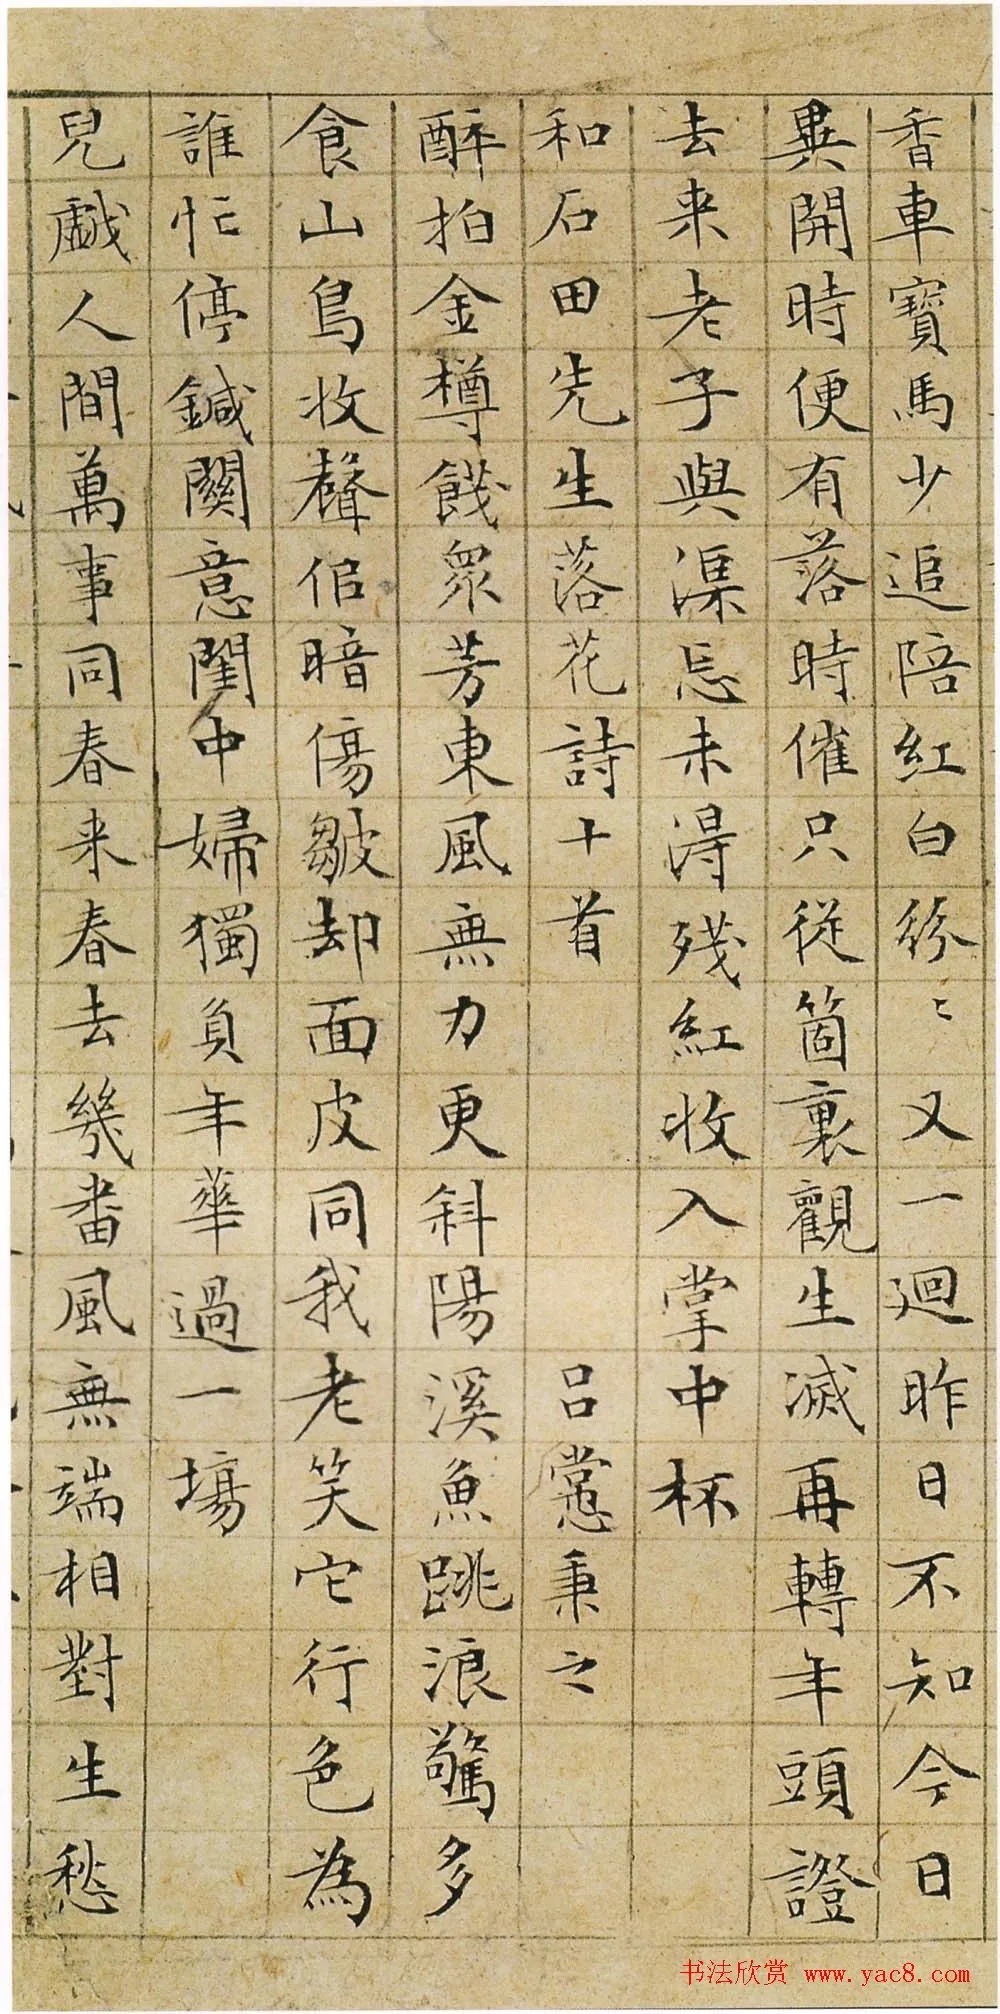 香車寶馬少追陪紅白紛〻又一迴昨日不知今日
異開時便有落時催只從箇裏觀生滅再轉年頭證
去来老子與渠忘未得殘紅收入掌中杯
和石田先生落花詩十首 吕㦂秉之
醉拍金樽餞衆芳東風無力更斜陽溪魚跳浪驚多
食山鳥收聲倍暗傷皺却面皮同我老笑它行色為
誰忙停鍼闗意閨中婦獨負年華過一塲
兒戯人間萬事同春来春去幾畨風無端相對生愁
书法欣赏 www.yac8.com